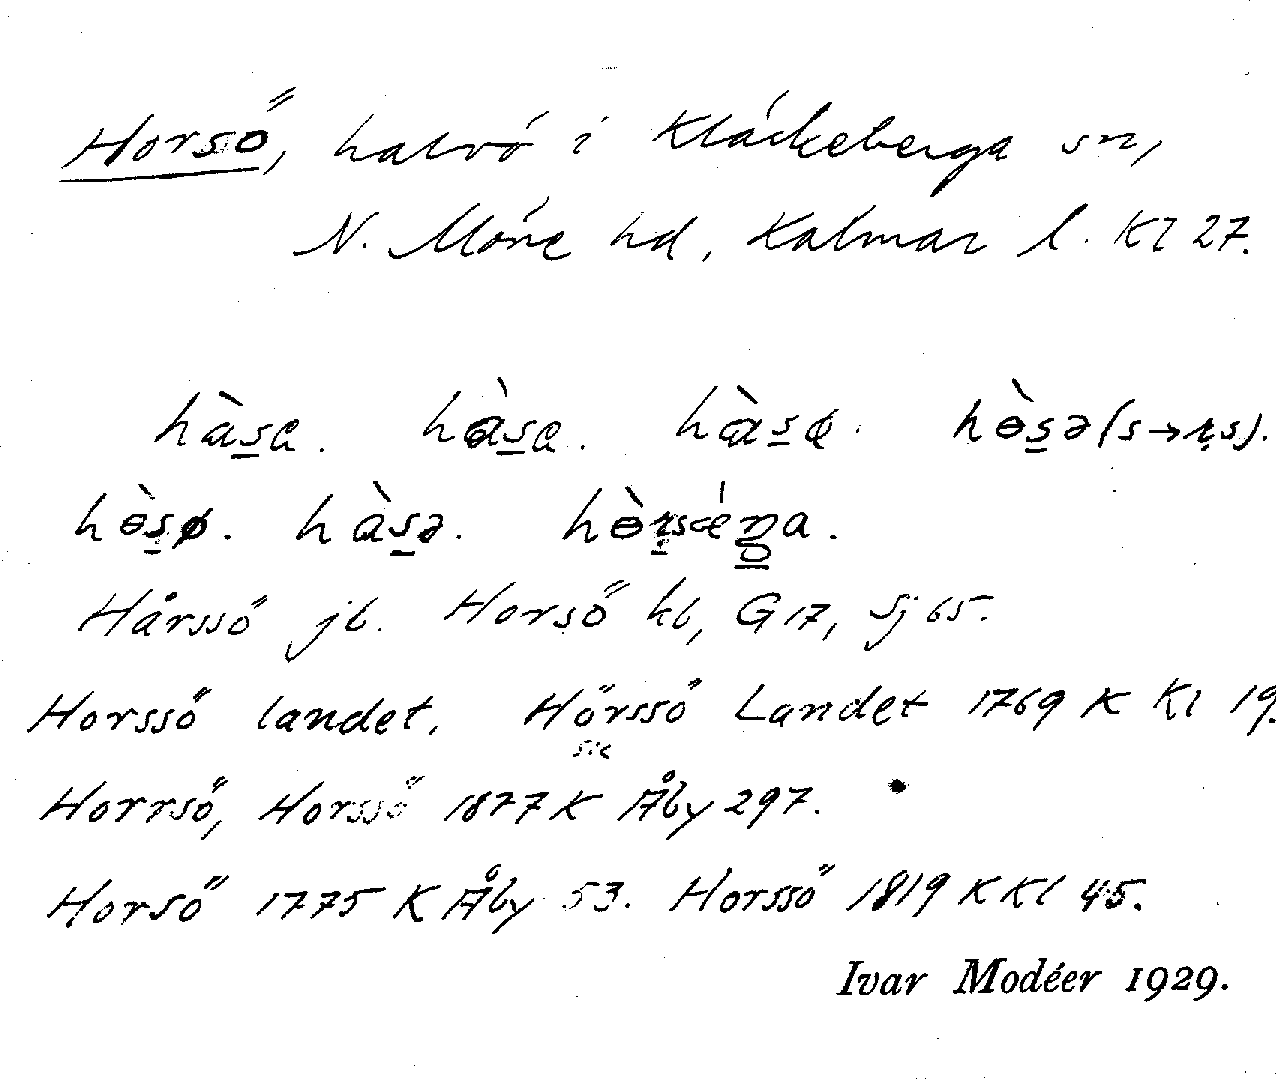 Horsö, halvö i Kläckeberga sn,
N. Möre hd, Kalmar l. Kl 27.
hàsa. hàsa. hàsø. hòsə (s→rs).
hòsø. hàsə. hòrsæŋa.
Hårssö jb. Horsö kb, G 17, Sj 65.
Horssö landet. Hörssö Landet 1769 K Kl 19.
sic
Horrsö, Horssö 1877 K Åby 297.
Horsö 1775 K Åby 53. Horssö 1819 K Kl 45.
Ivar Modéer 1929.